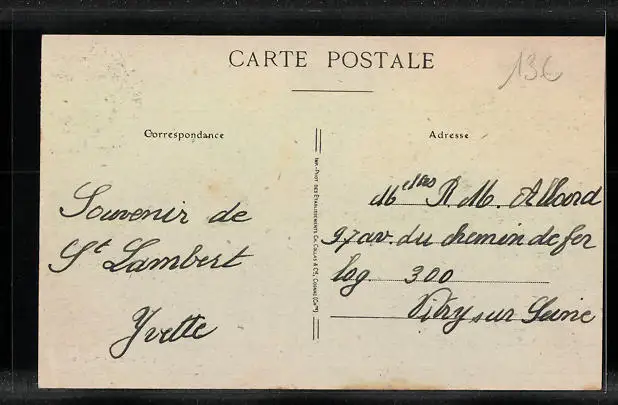 CARTE POSTALE
13€
Correspondance
Adresse
Souvenir de
St Lambert
Yvette
IMP.-PHOT. DES ETABLISSEMENTS CH. COLLAS & Cie, COGNAC (Chte)
Melles R. M. Allord
97 av. du chemin de fer
log. 300
Vitry sur Seine